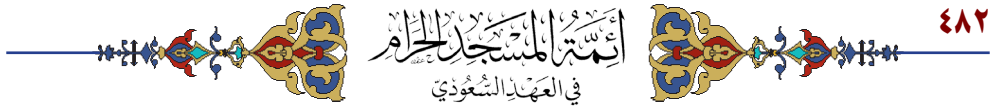 ٤٨٢
أَئِمَّةُ المَسْجِدِ الحَرَامِ
فِي العَهْدِ السُّعُودِيِّ